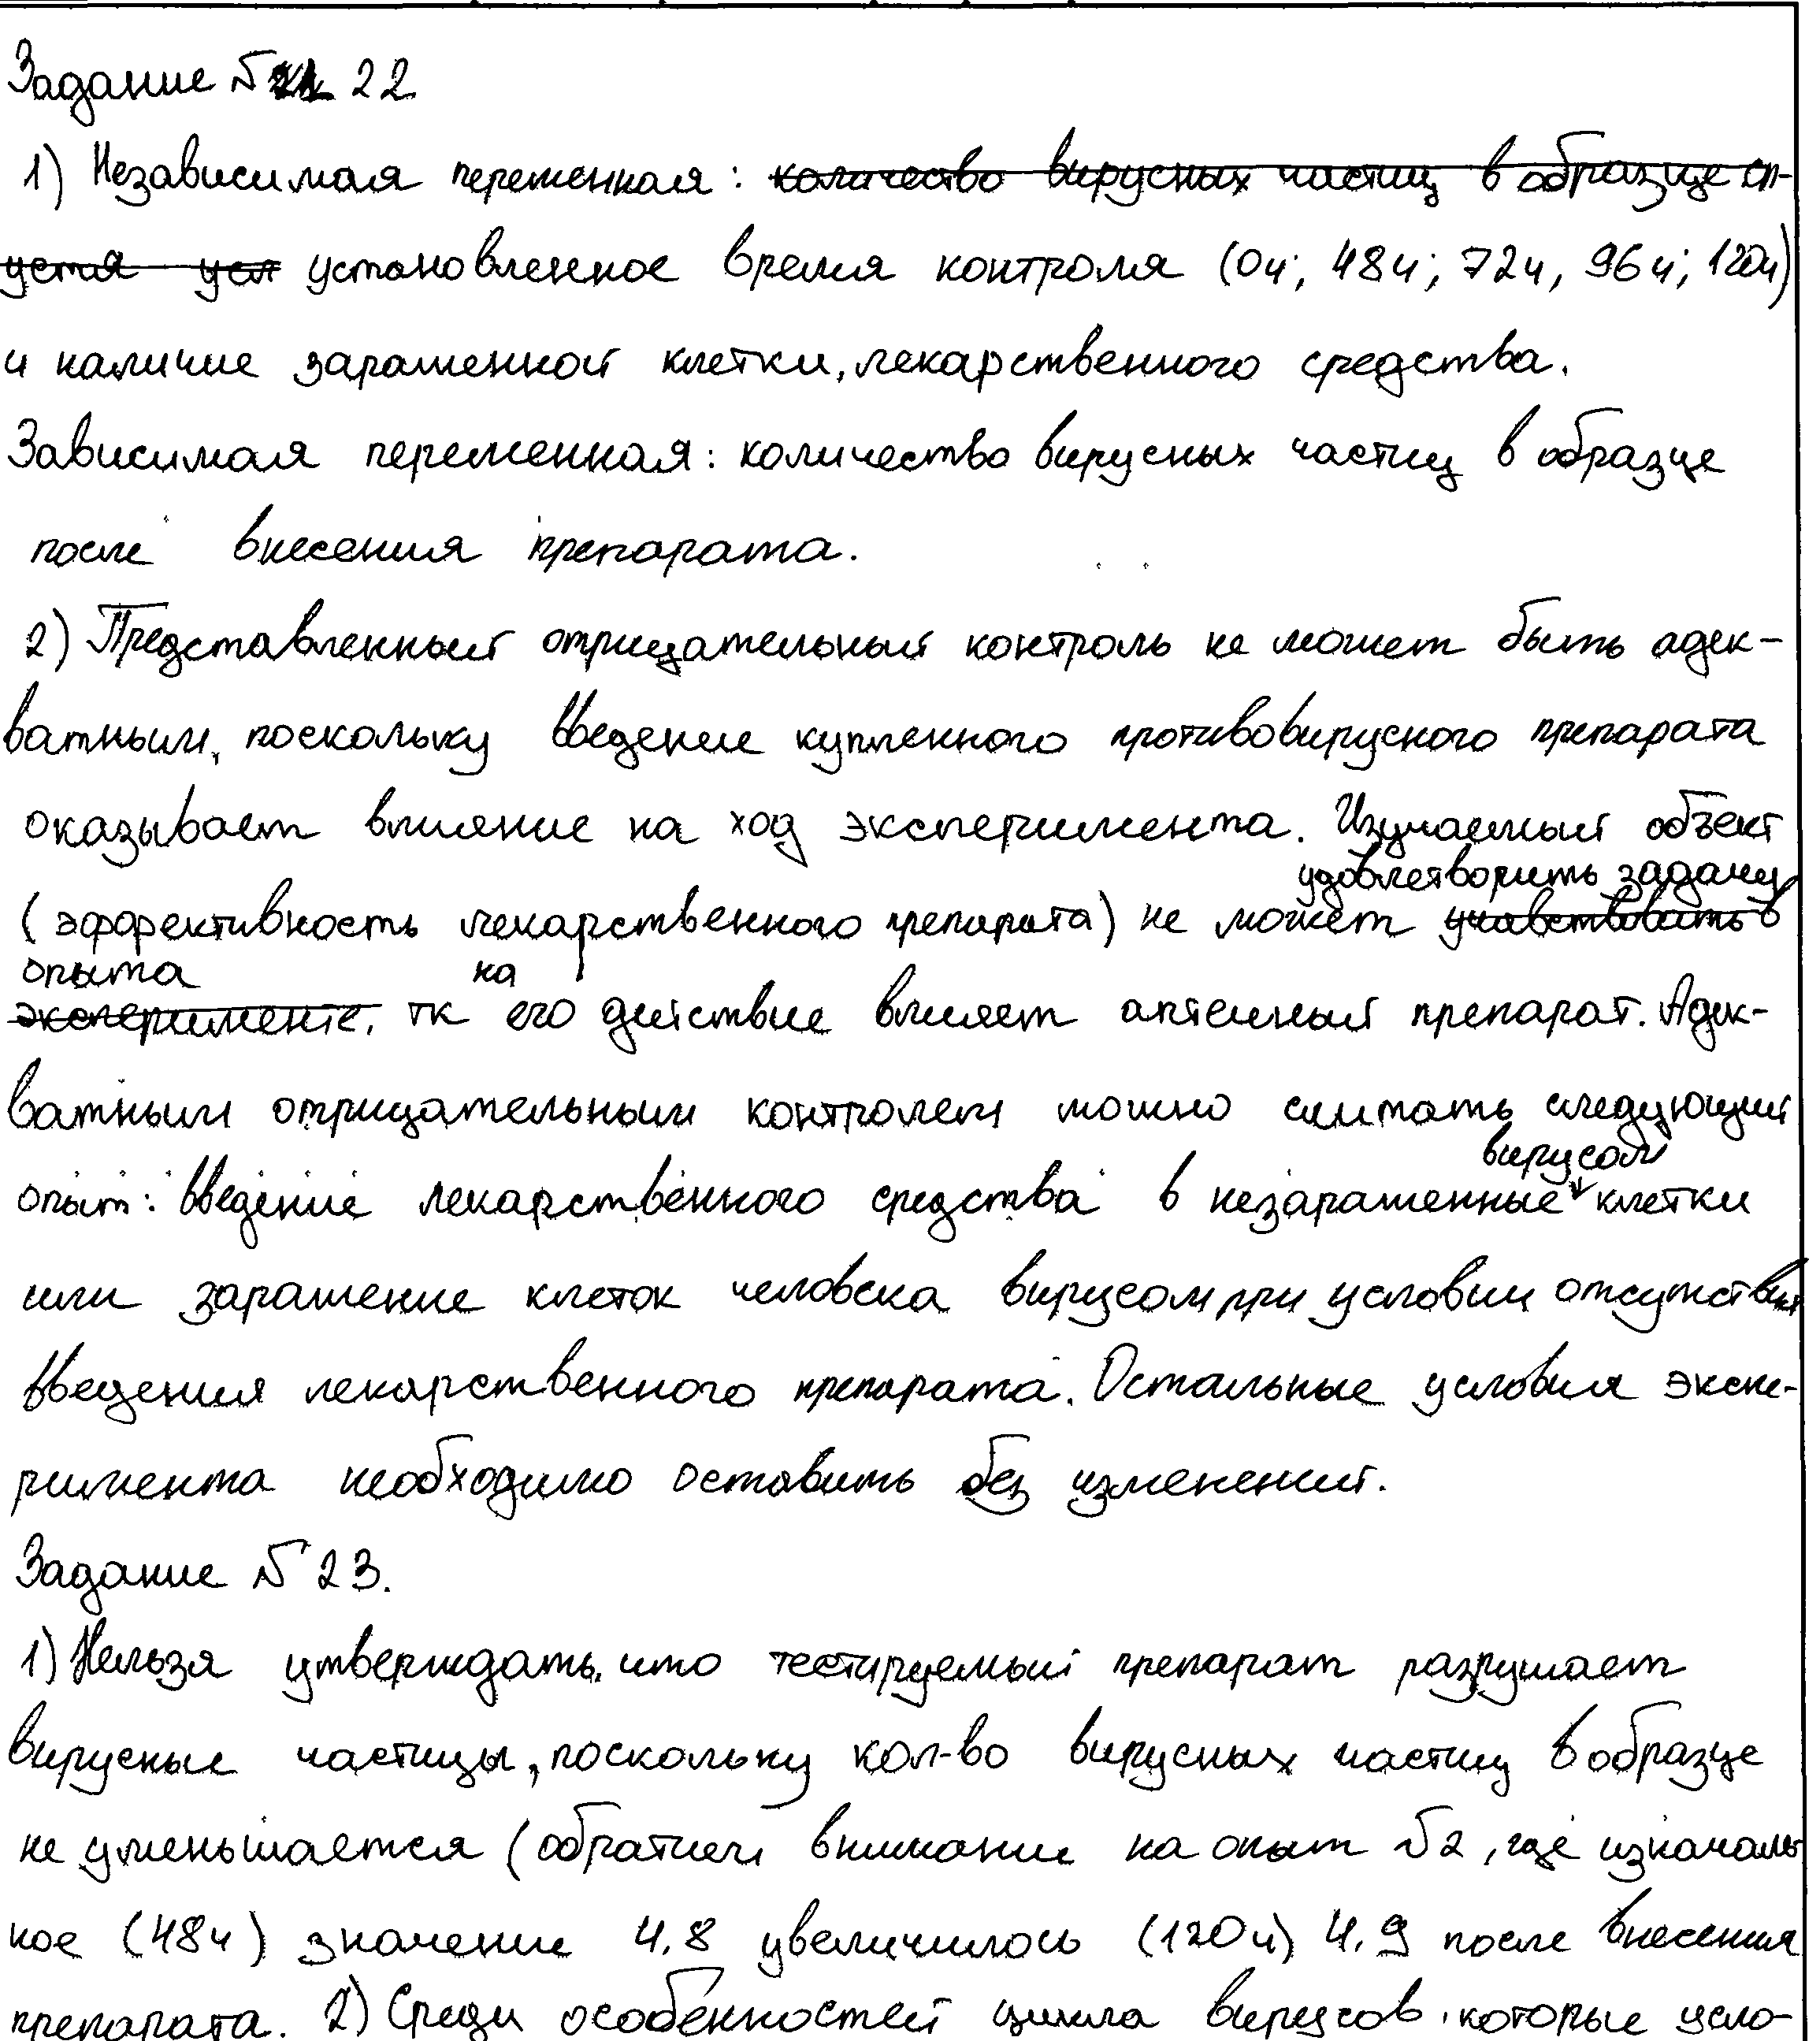 Задание № 22
1) Независимая переменная: количество вирусных частиц в образце сп-
устя усл установленное время контроля (0ч; 48ч; 72ч, 96ч; 120ч)
и наличие зараженной клетки, лекарственного средства.
Зависимая переменная: количество вирусных частиц в образце
после внесения препарата.
2) Представленный отрицательный контроль не может быть адек-
ватным, поскольку введение купленного противовирусного препарата
оказывает влияние на ход эксперимента. Изучаемый объект
удовлетворить задачу
(эффективность лекарственного препарата) не может участвовать в
опыта на
эксперименте. тк его действие влияет аптечный препарат. Адек-
ватным отрицательным контролем можно считать следующий
вирусом
опыт: введение лекарственного средства в незараженные клетки
или заражение клеток человека вирусом при условии отсутствия
введения лекарственного препарата. Остальные условия экспе-
римента необходимо оставить без изменений.
Задание № 23.
1) Нельзя утверждать, что тестируемый препарат разрушает
вирусные частицы, поскольку кол-во вирусных частиц в образце
не уменьшается (обратим внимание на опыт №2, где изначаль
ное (48ч) значение 4.8 увеличилось (120ч) 4.9 после внесения
препарата. 2) Среди особенностей цикла вирусов, которые усло-